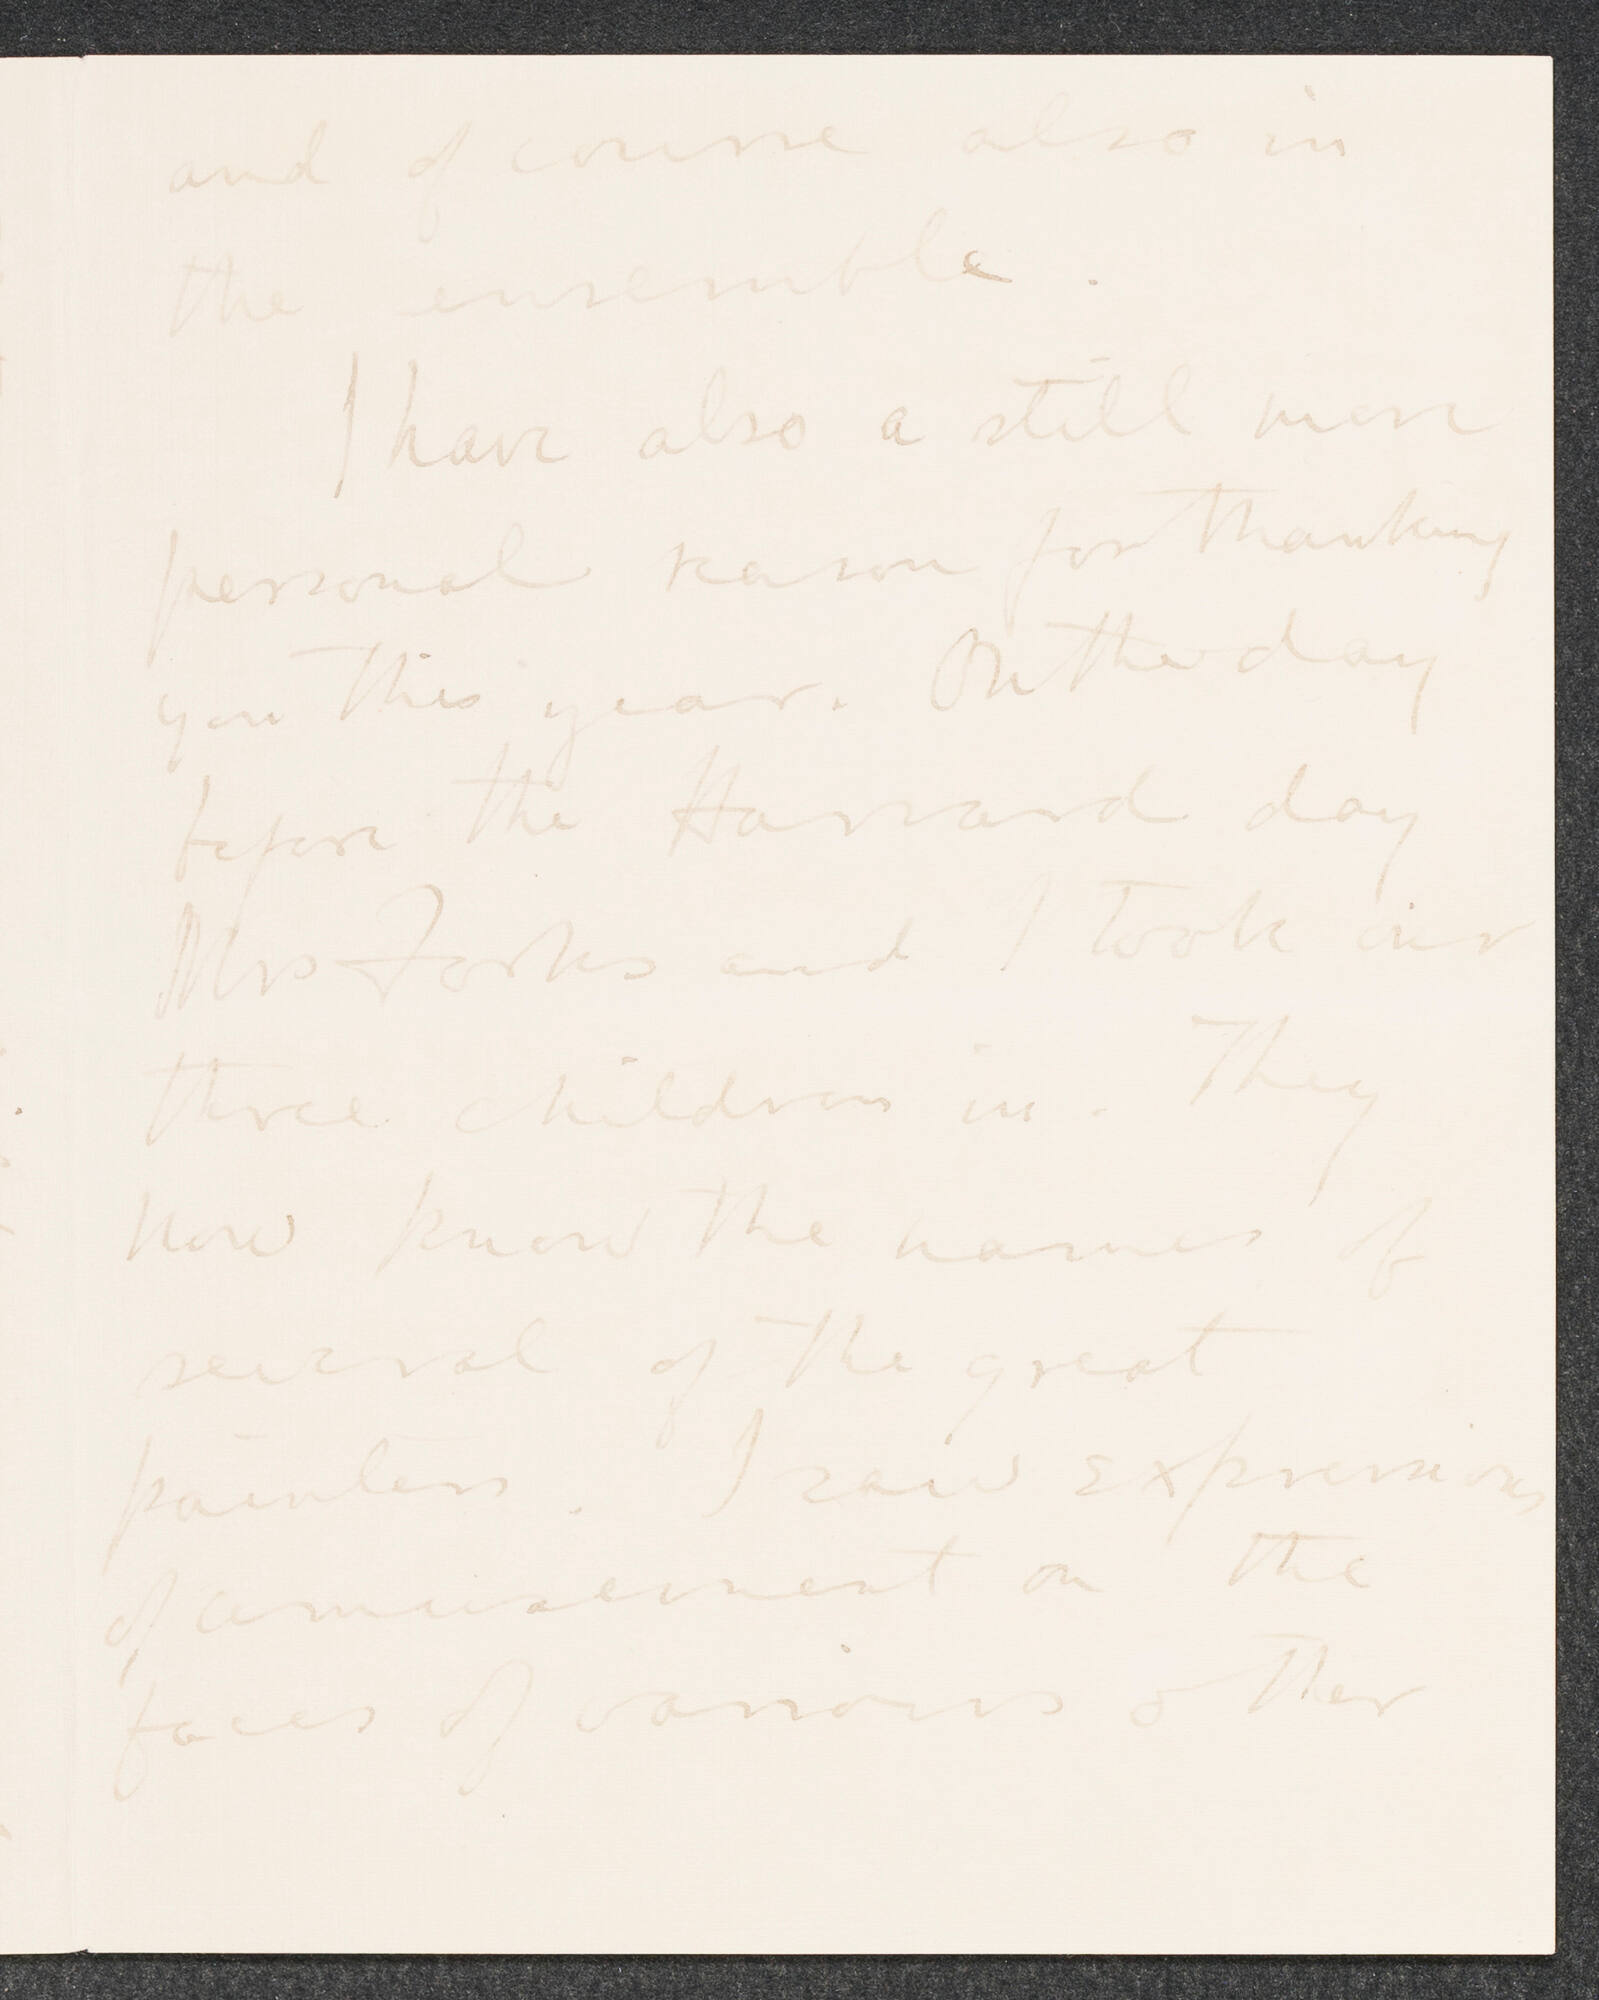 and of course also in
the ensemble.
I have also a still more
personal reason for thanking
you this year. On the day
before the Harvard day
Mrs Forbes and I took our
three children in. They
now know the names of
several of the great
painters. I saw expressions
of amusement on the
faces of various other